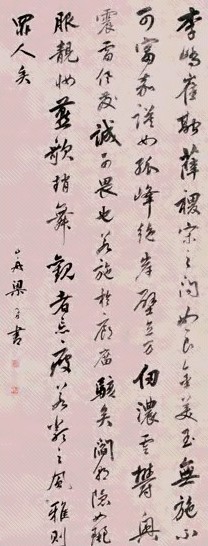 李嶠崔融薛稷宋之問如良金美玉無施不
可富嘉謨如孤峰絕岸壁立万仞濃雲鬱興
震雷俱發誠可畏也若施於廊廟駭矣閻朝隱如麗
服靚妝燕歌趙舞觀者忘疲若類之風雅則
罪人矣
山舟梁同書